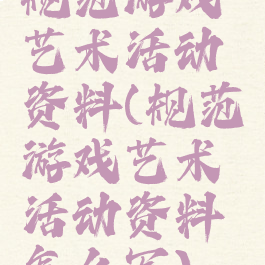 规范游戏
艺术活动
资料(规范
游戏艺术
活动资料
怎么写)